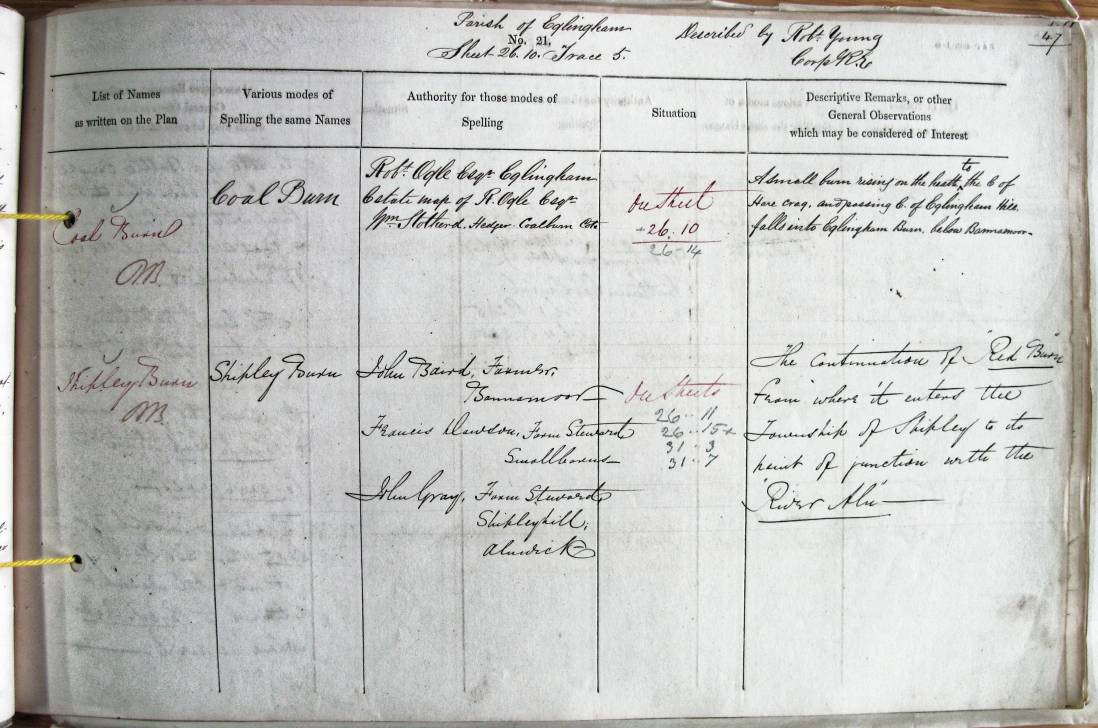 Parish of Eglingham
No. 21,
Sheet 26.10. Trace 5.
Described by Robt. Young
Corpl R.E.
47
List of Names
as written on the Plan
Various modes of
Spelling the same Names
Authority for those modes of
Spelling
Situation
Descriptive Remarks, or other
General Observations
which may be considered of Interest
Coal Burn
Coal Burn
Robt. Ogle Esqr. Eglingham
Estate map of R. Ogle Esqr.
Wm. Stotherd, Hedger. Coalburn Cots
On Sheet
26. 10
26-14
A small burn rising on the heath, to the E of
Hare Crag, and passing E. of Eglingham Hill
falls into Eglingham Burn, below Bannamoor.
Shipley Burn
Shipley Burn
John Baird, Farmer,
Bannamoor
Francis Dawson, Farm Steward
Smallburns
John Gray, Farm Steward
Shipleyhill,
Alnwick
On Sheets
26-11
26-15+
31-3
31-7
The continuation of "Red Burn"
from where it enters the
Township of Shipley to its
point of junction with the
"River Aln"